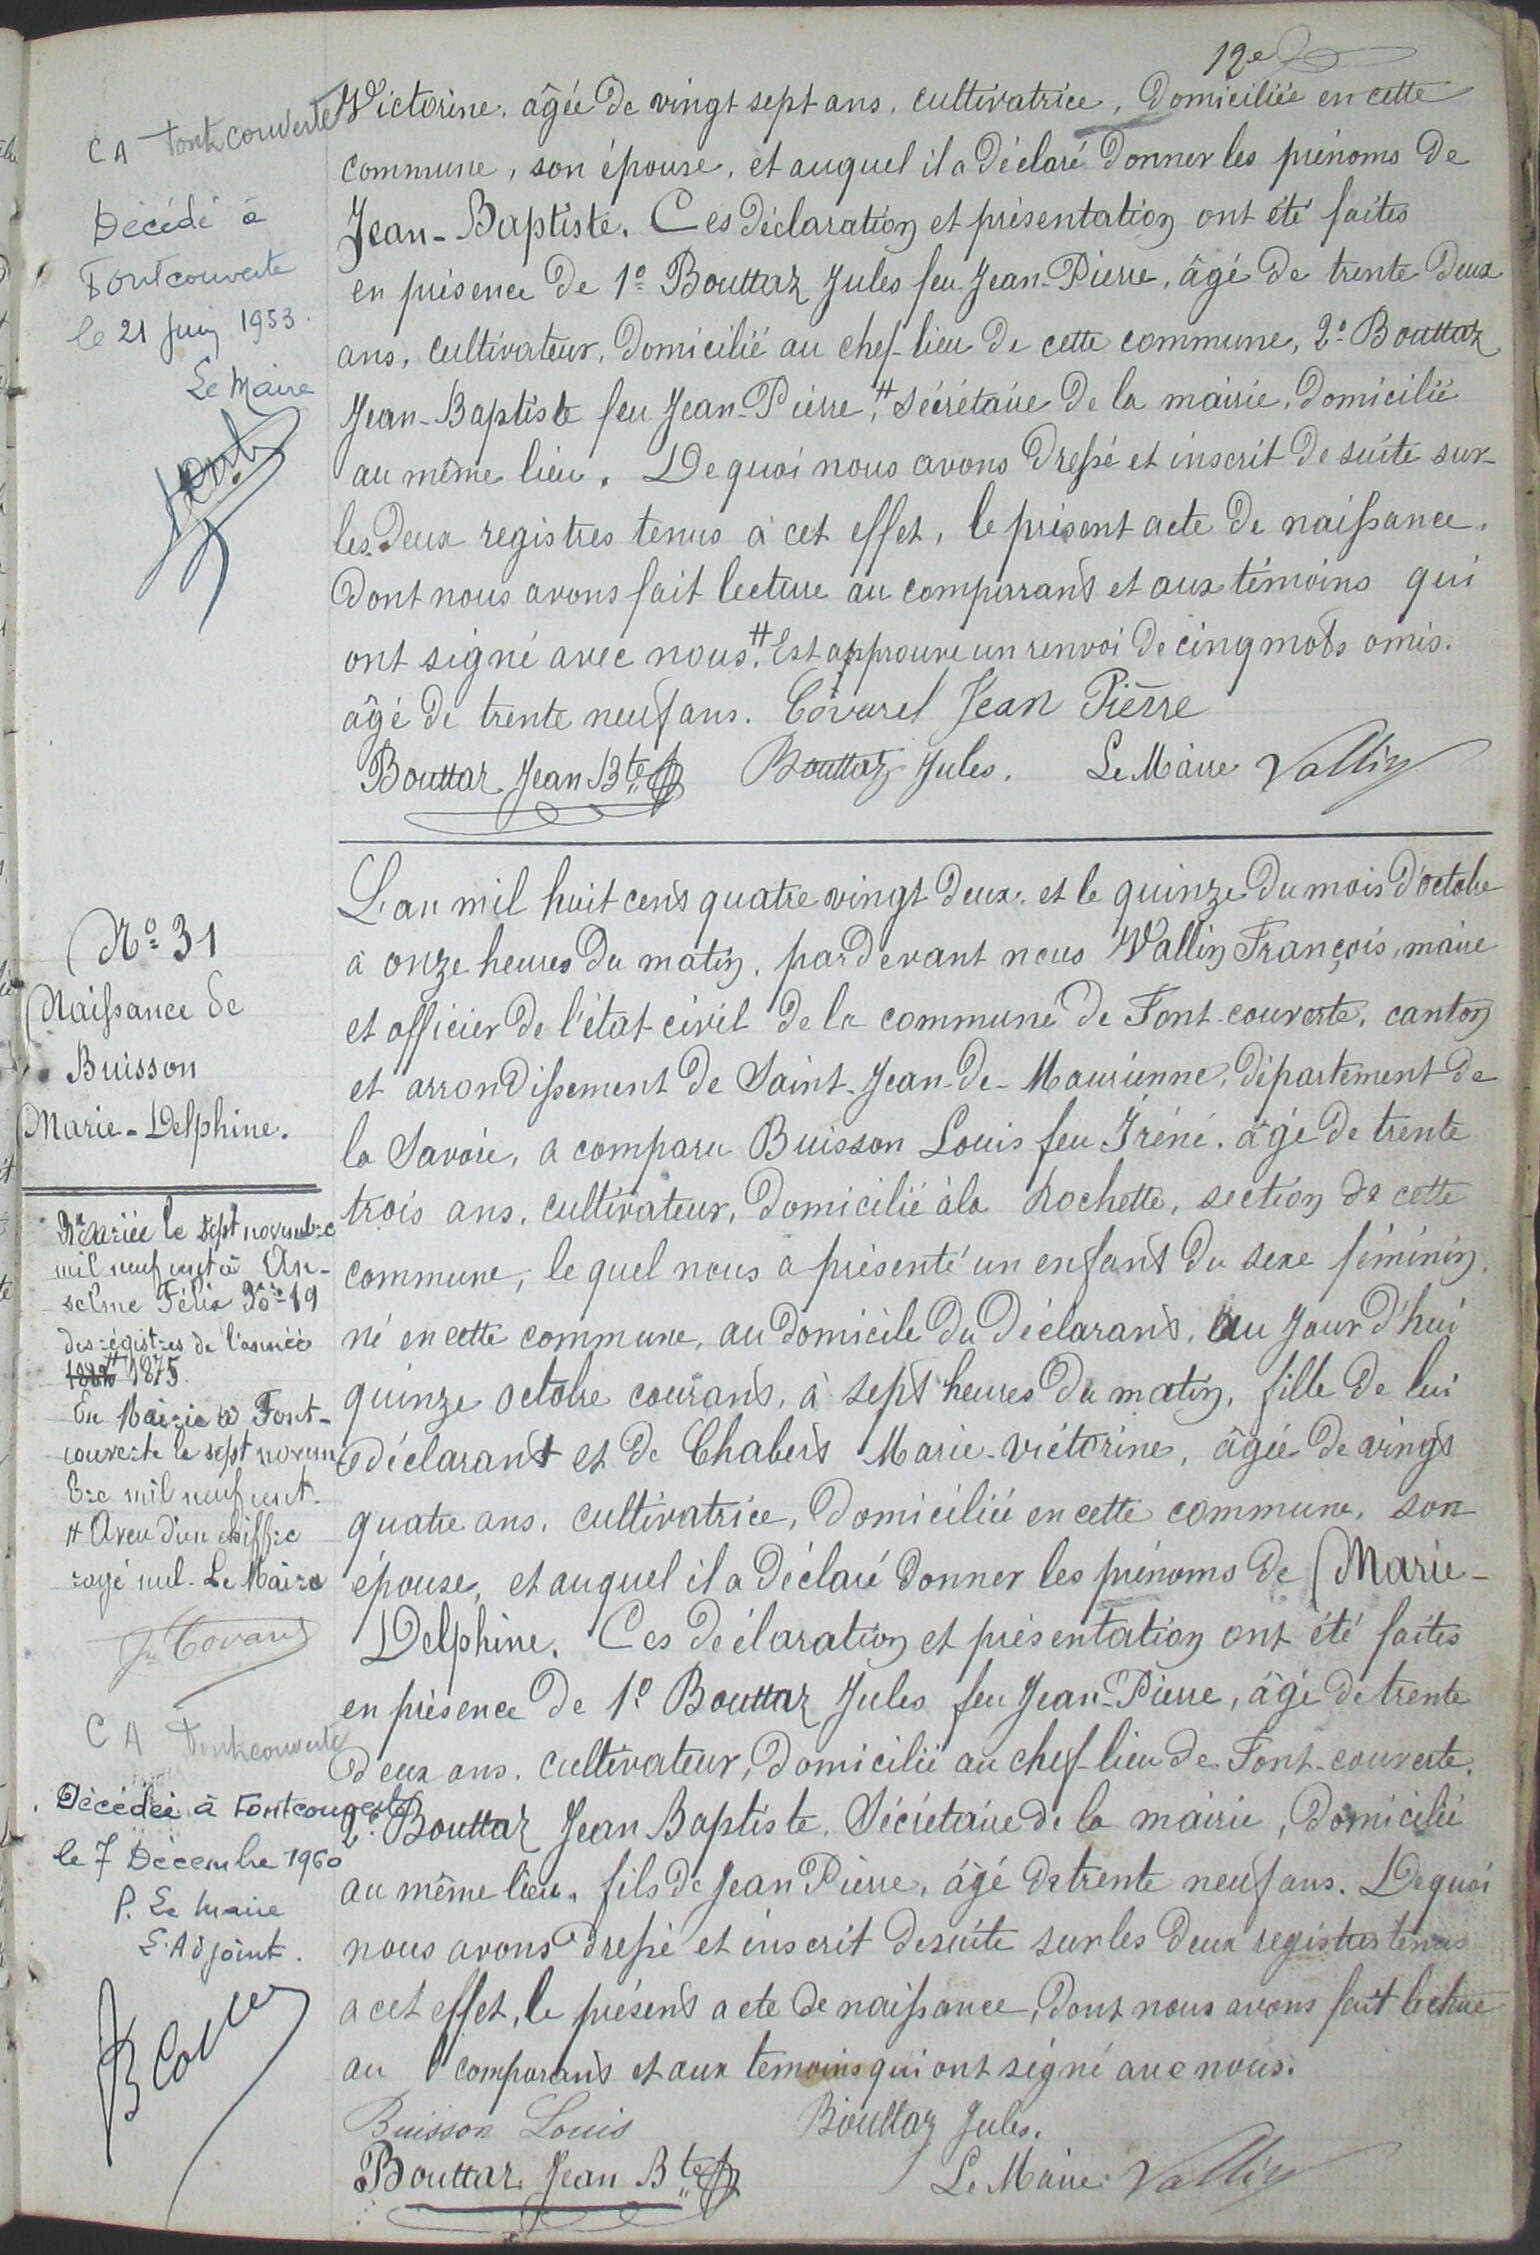 12e
Victorine, âgée de vingt sept ans, cultivatrice, domiciliée en cette
commune, son épouse, et auquel il a déclaré donner les prénoms de
Jean-Baptiste. Ces déclaration et présentation ont été faites
en présence de 1o Bouttaz Jules feu Jean-Pierre, âgé de trente deux
ans, cultivateur, domicilié au chef-lieu de cette commune, 2o Bouttaz
Jean-Baptiste feu Jean-Pierre,# sécrétaire de la mairie, domicilié
au même lieu. De quoi nous avons dressé et inscrit de suite sur
les deux registres tenus à cet effet, le présent acte de naissance,
dont nous avons fait lecture au comparant et aux témoins qui
ont signé avec nous.# Est approuvé un renvoi de cinq mots omis.
âgé de trente neuf ans. Covarel Jean Pierre
Bouttaz Jean Bte Bouttaz Jules. Le Maire Vallin
CA Fontcouverte
Décédé à
Fontcouverte
le 21 Juin 1953.
Le Maire
No 31
Naissance de
Buisson
Marie-Delphine.
L'an mil huit cent quatre vingt deux, et le quinze du mois d'octobre
à onze heures du matin, pardevant nous Vallin François, maire
et officier de l'état civil de la commune de Font-couverte, canton
et arrondissement de Saint-Jean-de-Maurienne, département de
la Savoie, a comparu Buisson Louis feu Iréné, âgé de trente
trois ans, cultivateur, domicilié à la Rochette, section de cette
commune, lequel nous a présenté un enfant du sexe féminin,
né en cette commune, au domicile du déclarant, au jour d'hui
quinze octobre courant, à sept heures du matin, fille de lui
déclarant et de Chabert Marie-victorine, âgée de vingt
quatre ans, cultivatrice, domiciliée en cette commune, son
épouse, et auquel il a déclaré donner les prénoms de Marie-
Delphine. Ces déclaration et présentation ont été faites
en présence de 1o Bouttaz Jules feu Jean-Pierre, âgé de trente
deux ans, cultivateur, domicilié au chef-lieu de Font-couverte,
2o Bouttaz Jean Baptiste, Sécrétaire de la mairie, domicilié
au même lieu, fils de Jean Pierre, âgé de trente neuf ans. De quoi
nous avons dressé et inscrit de suite sur les deux registres tenus
a cet effet, le présent acte de naissance, dont nous avons fait lecture
au comparant et aux temoins qui ont signé avec nous.
Buisson Louis Bouttaz Jules.
Bouttaz Jean Bte Le Maire Vallin
Mariée le sept novembre
mil neuf cent à An-
selme Félix No 19
des régistres de l'année
1882# 1875.
En Mairie à Font-
couverte le sept novem
bre mil neuf cent.
# Aveu d'un chiffre
rayé nul. Le Maire
CA Fontcouverte
Décédée à Fontcouverte
le 7 Décembre 1960
P. Le Maire
L'Adjoint.